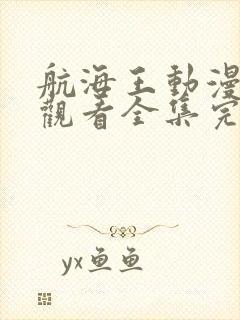 航海王動漫
觀看全集完
yx鱼鱼